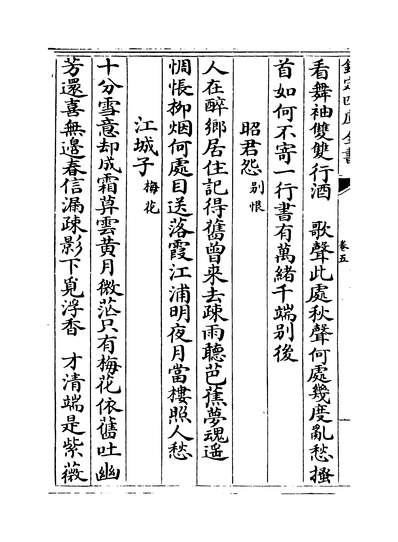 欽定四庫全書
卷五
看舞袖雙雙行酒　歌聲此處秋聲何處幾度亂愁搔
首如何不寄一行書有萬緒千端别後
昭君怨别恨
人在醉鄉居住記得舊曾來去疎雨聽芭蕉夢魂遥
惆悵柳烟何處目送落霞江浦明夜月當樓照人愁
江城子梅花
十分雪意却成霜莫雲黄月微茫只有梅花依舊吐幽
芳還喜無邊春信漏疎影下覓浮香　才清端是紫薇